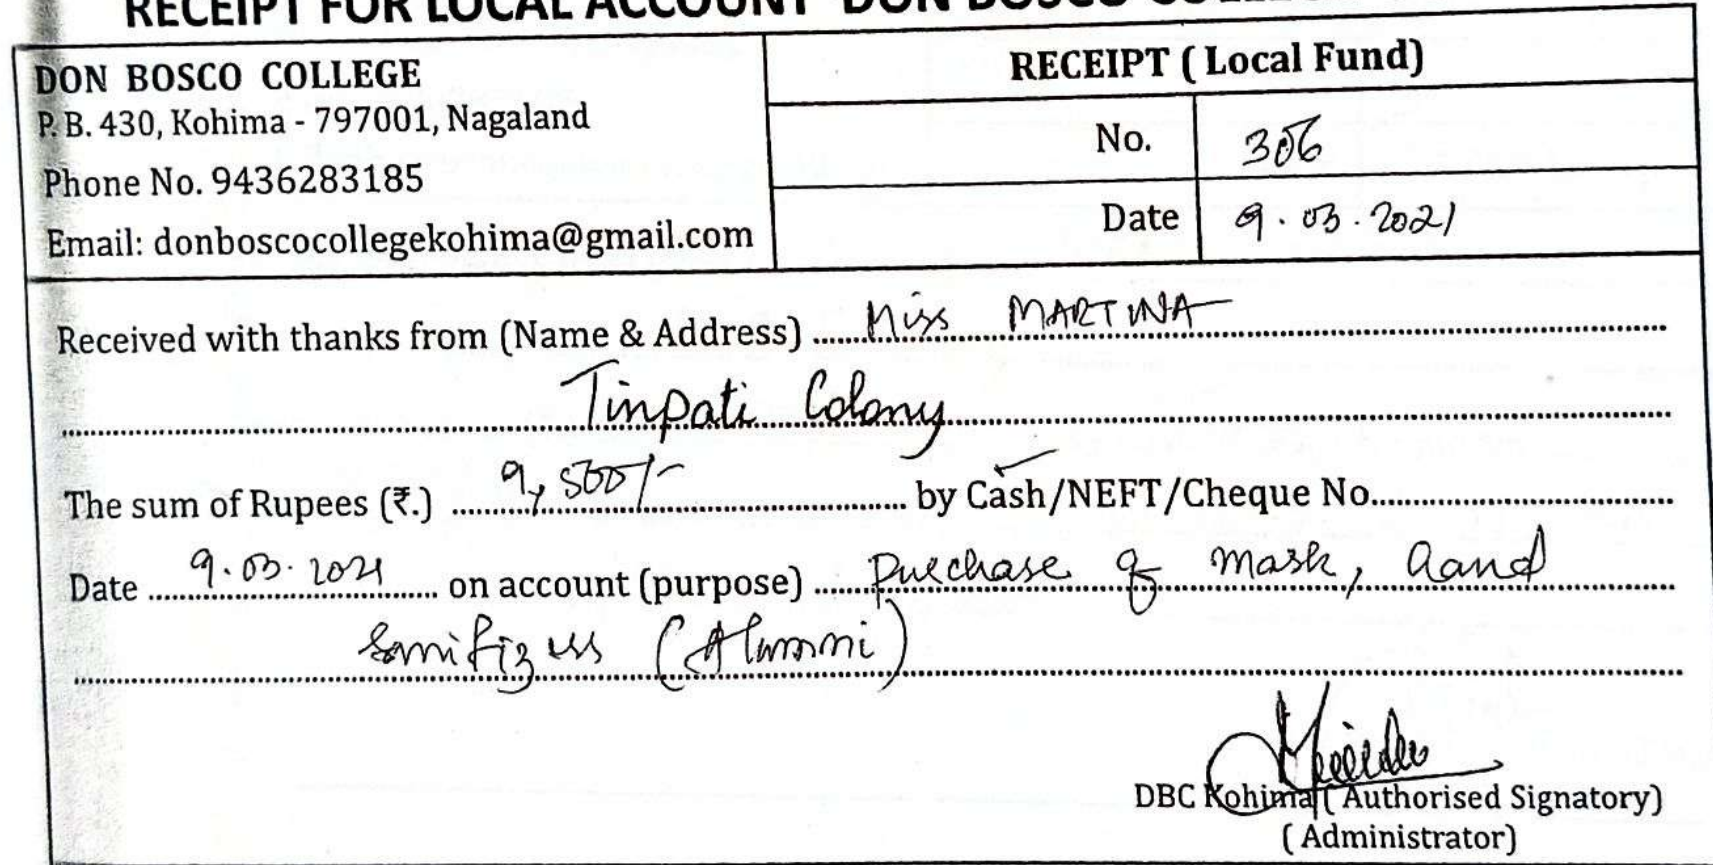 RECEIPT FOR LOCAL ACCOUNT DON BOSCO
DON BOSCO COLLEGE
P. B. 430, Kohima - 797001, Nagaland
Phone No. 9436283185
Email: donboscocollegekohima@gmail.com
RECEIPT ( Local Fund)
No. 306
Date 9.03.2021
Received with thanks from (Name & Address) Miss MARTINA
Tinpati Colony
The sum of Rupees (₹.) 9,500/- by Cash/NEFT/Cheque No.
Date 9.03.2021 on account (purpose) Purchase of mask, Hand
Sanitizers (Alumni)
DBC Kohima ( Authorised Signatory)
( Administrator)